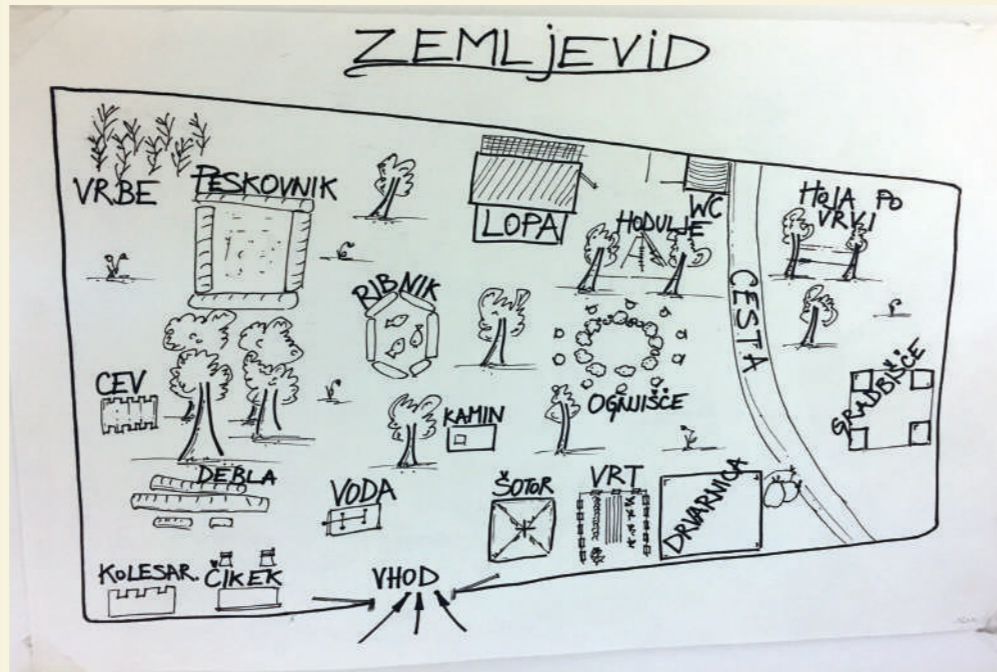 ZEMLJEVID
VRBE
PESKOVNIK
LOPA
HODULJE
WC
HOJA PO
VRVI
RIBNIK
CESTA
CEV
KAMIN
OGNJIŠČE
GRADBIŠČE
DEBLA
VODA
ŠOTOR
VRT
DRVARNICA
KOLESAR.
ČIKEK
VHOD